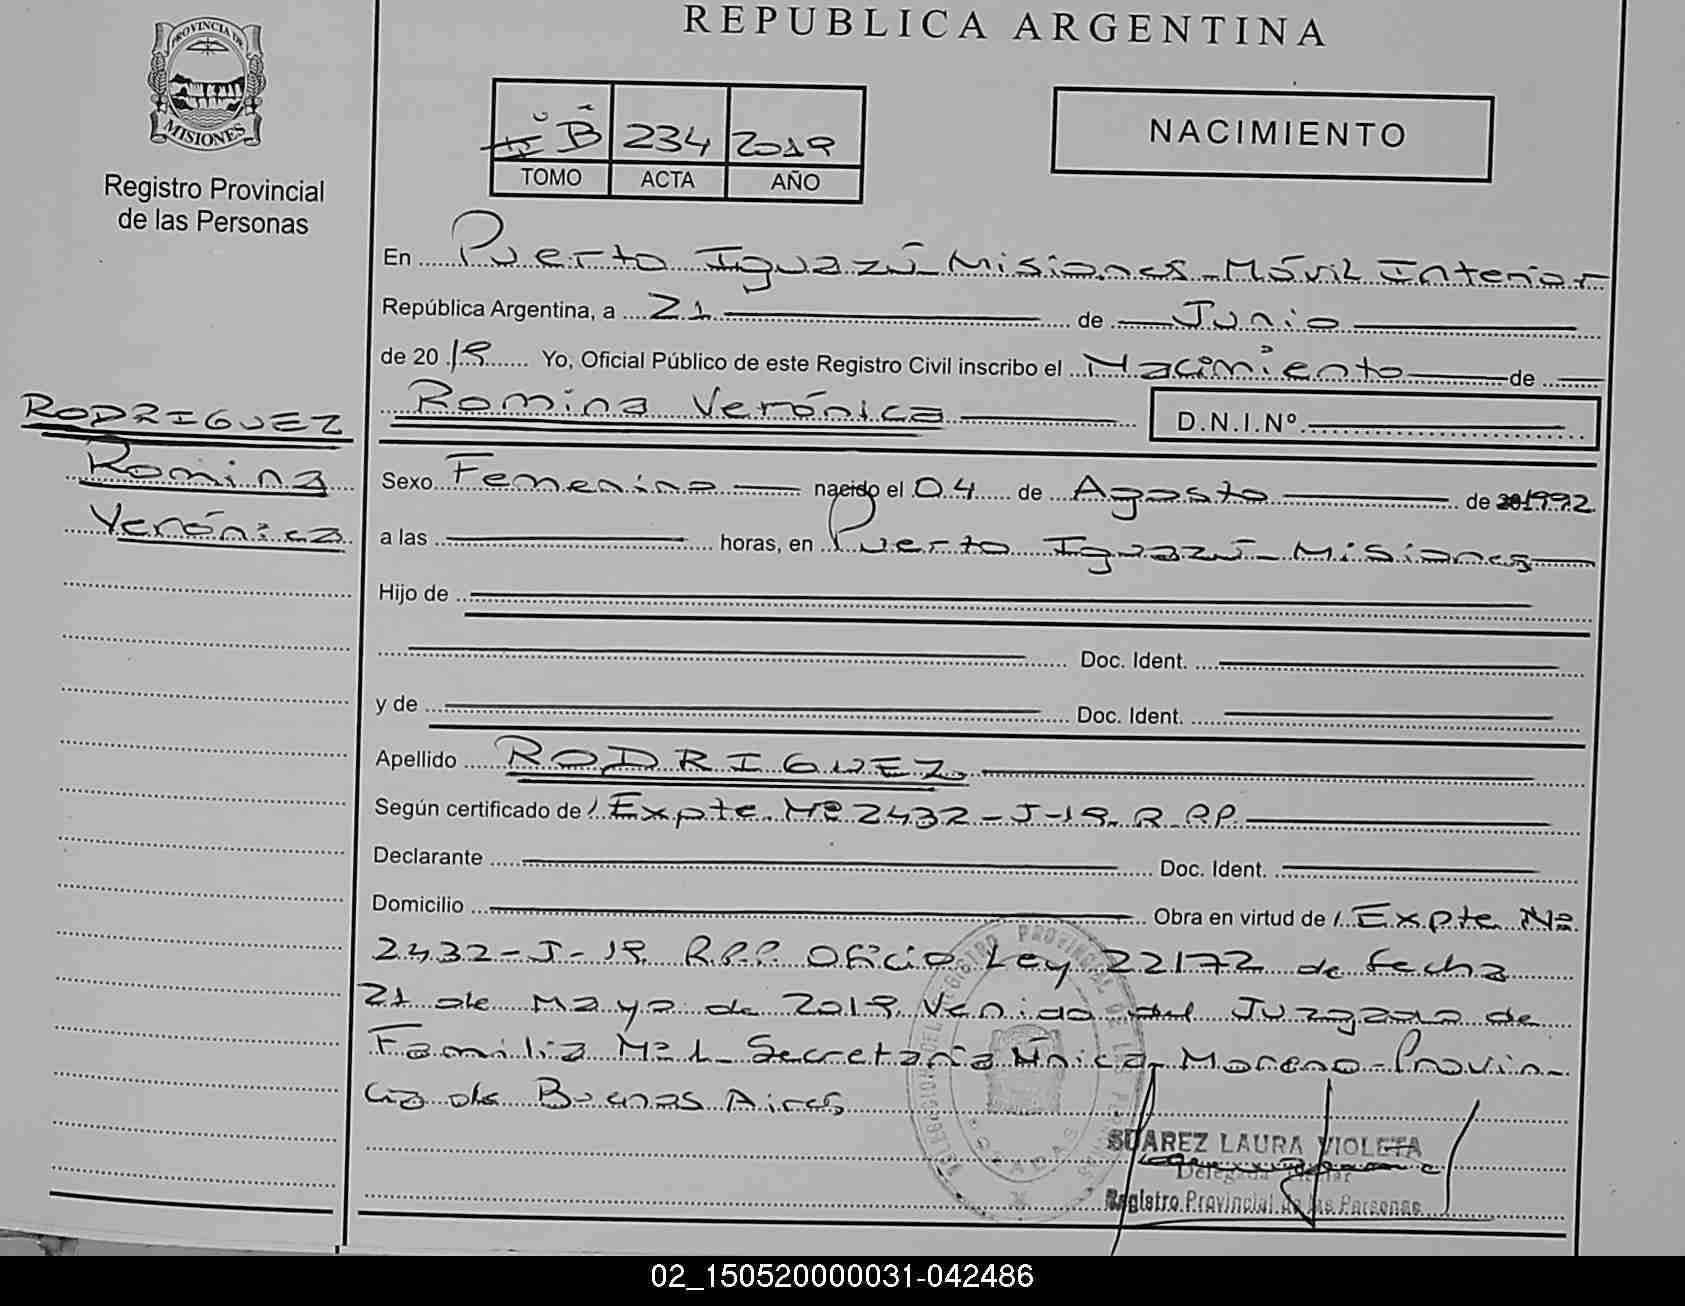 REPUBLICA ARGENTINA
PROVINCIA DE
MISIONES
Registro Provincial
de las Personas
B 234 2019
TOMO ACTA AÑO
NACIMIENTO
En Puerto Iguazú - Misiones - Móvil Interior
República Argentina, a 21 de Junio
de 2019 Yo, Oficial Público de este Registro Civil inscribo el Nacimiento de
Romina Verónica D.N.I.Nº
RODRIGUEZ
Romina
Verónica
Sexo Femenino nacido el 04 de Agosto de 1992
a las horas, en Puerto Iguazú - Misiones
Hijo de
Doc. Ident.
y de Doc. Ident.
Apellido RODRIGUEZ
Según certificado de Expte. Nº 2432-J-19 R.P.P.
Declarante Doc. Ident.
Domicilio Obra en virtud de Expte Nº
2432-J-19 R.P.P. Oficio Ley 22172 de fecha
21 de Mayo de 2019 Venido del Juzgado de
Familia Nº 1 - Secretaría Única - Moreno - Provin-
cia de Buenos Aires
SUAREZ LAURA VIOLETA
Delegada
Registro Provincial de las Personas
POSADAS
02_150520000031-042486